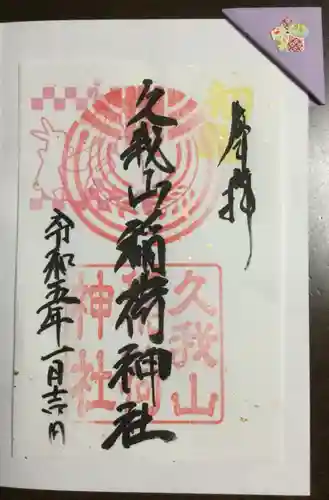 奉拝
久我山稲荷神社
令和五年一月十六日
久我山
稲荷
神社